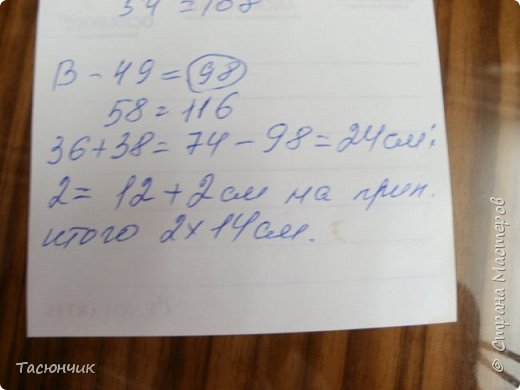 54 = 108
В - 49 = 98
58 = 116
36 + 38 = 74 - 98 = 24 см :
2 = 12 + 2 см на прип.
итого 2 х 14 см.
NOVARTIS
Тасюнчик
© Страна Мастеров